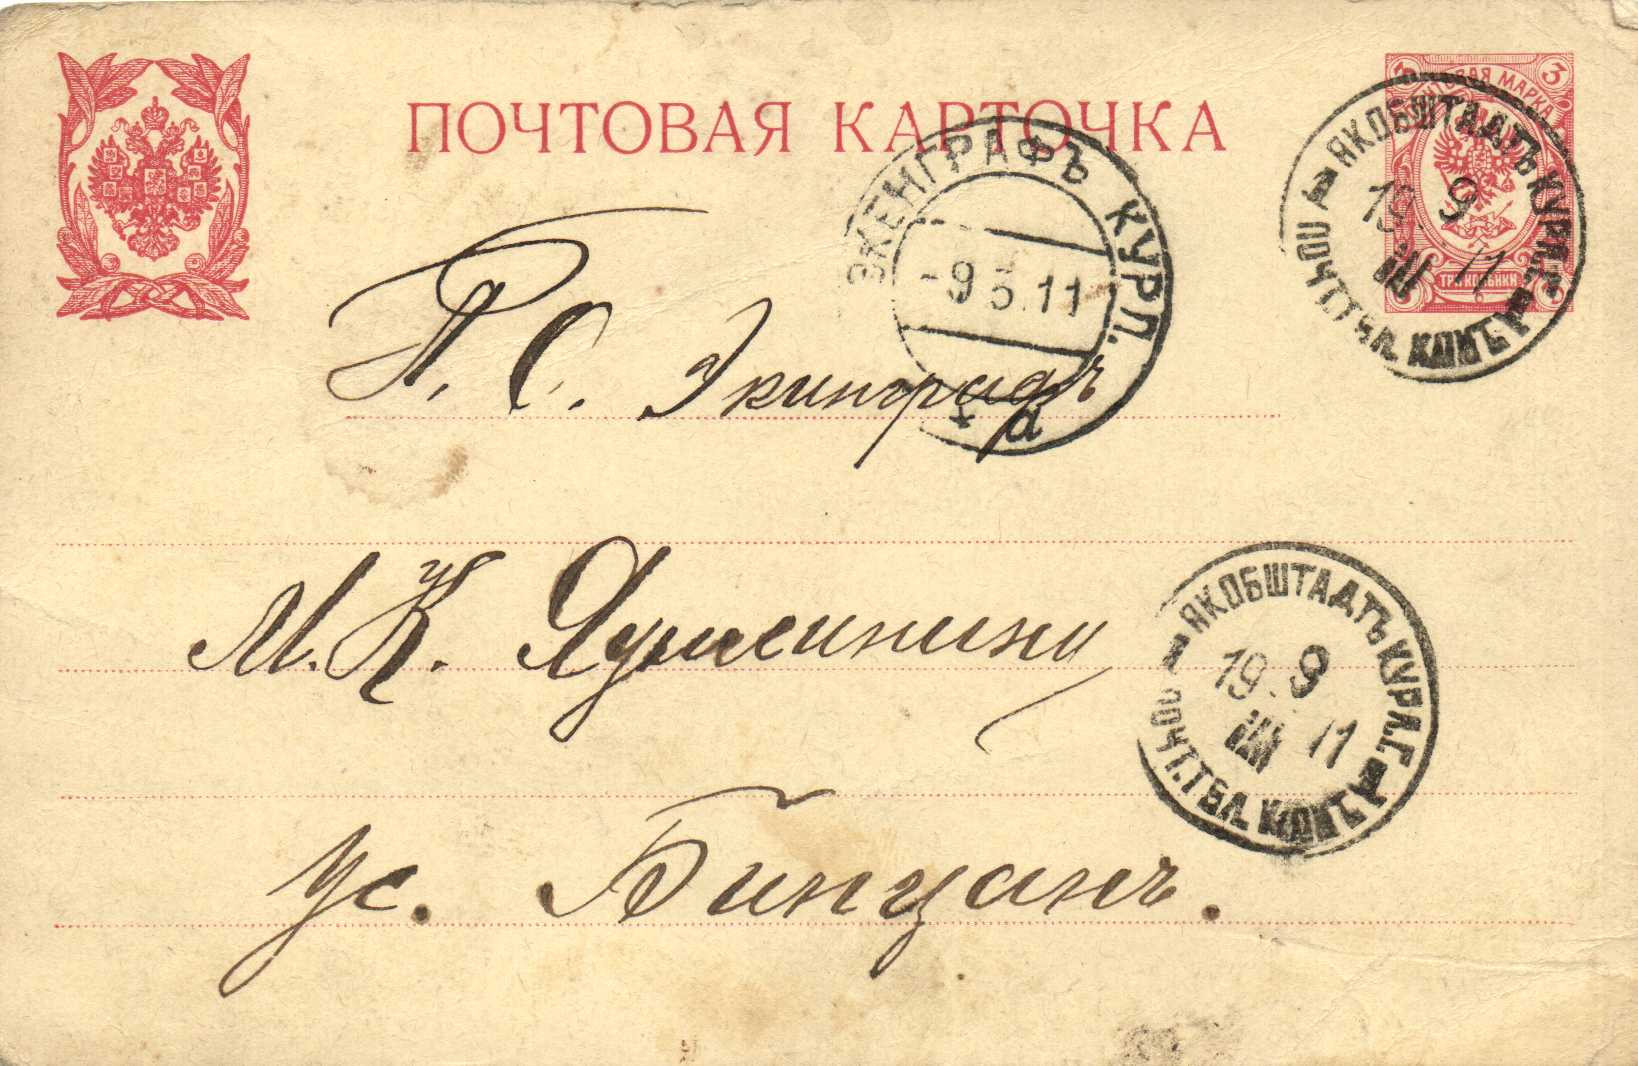 ПОЧТОВАЯ КАРТОЧКА
3 МАРКА 3
ТРИ КОПѢЙКИ
ЯКОБШТАДТЪ КУРЛ. Г.
ПОЧТ. ТЕЛ. КОНТ.
19 9 III 11
ЭКЕНГРАФЪ КУРЛ.
-9 3.11
а
П. С. Экинграфъ
М. К.
ЯКОБШТАДТЪ КУРЛ. Г.
ПОЧТ. ТЕЛ. КОНТ.
19 9 III 11
ус. Бинцанъ.